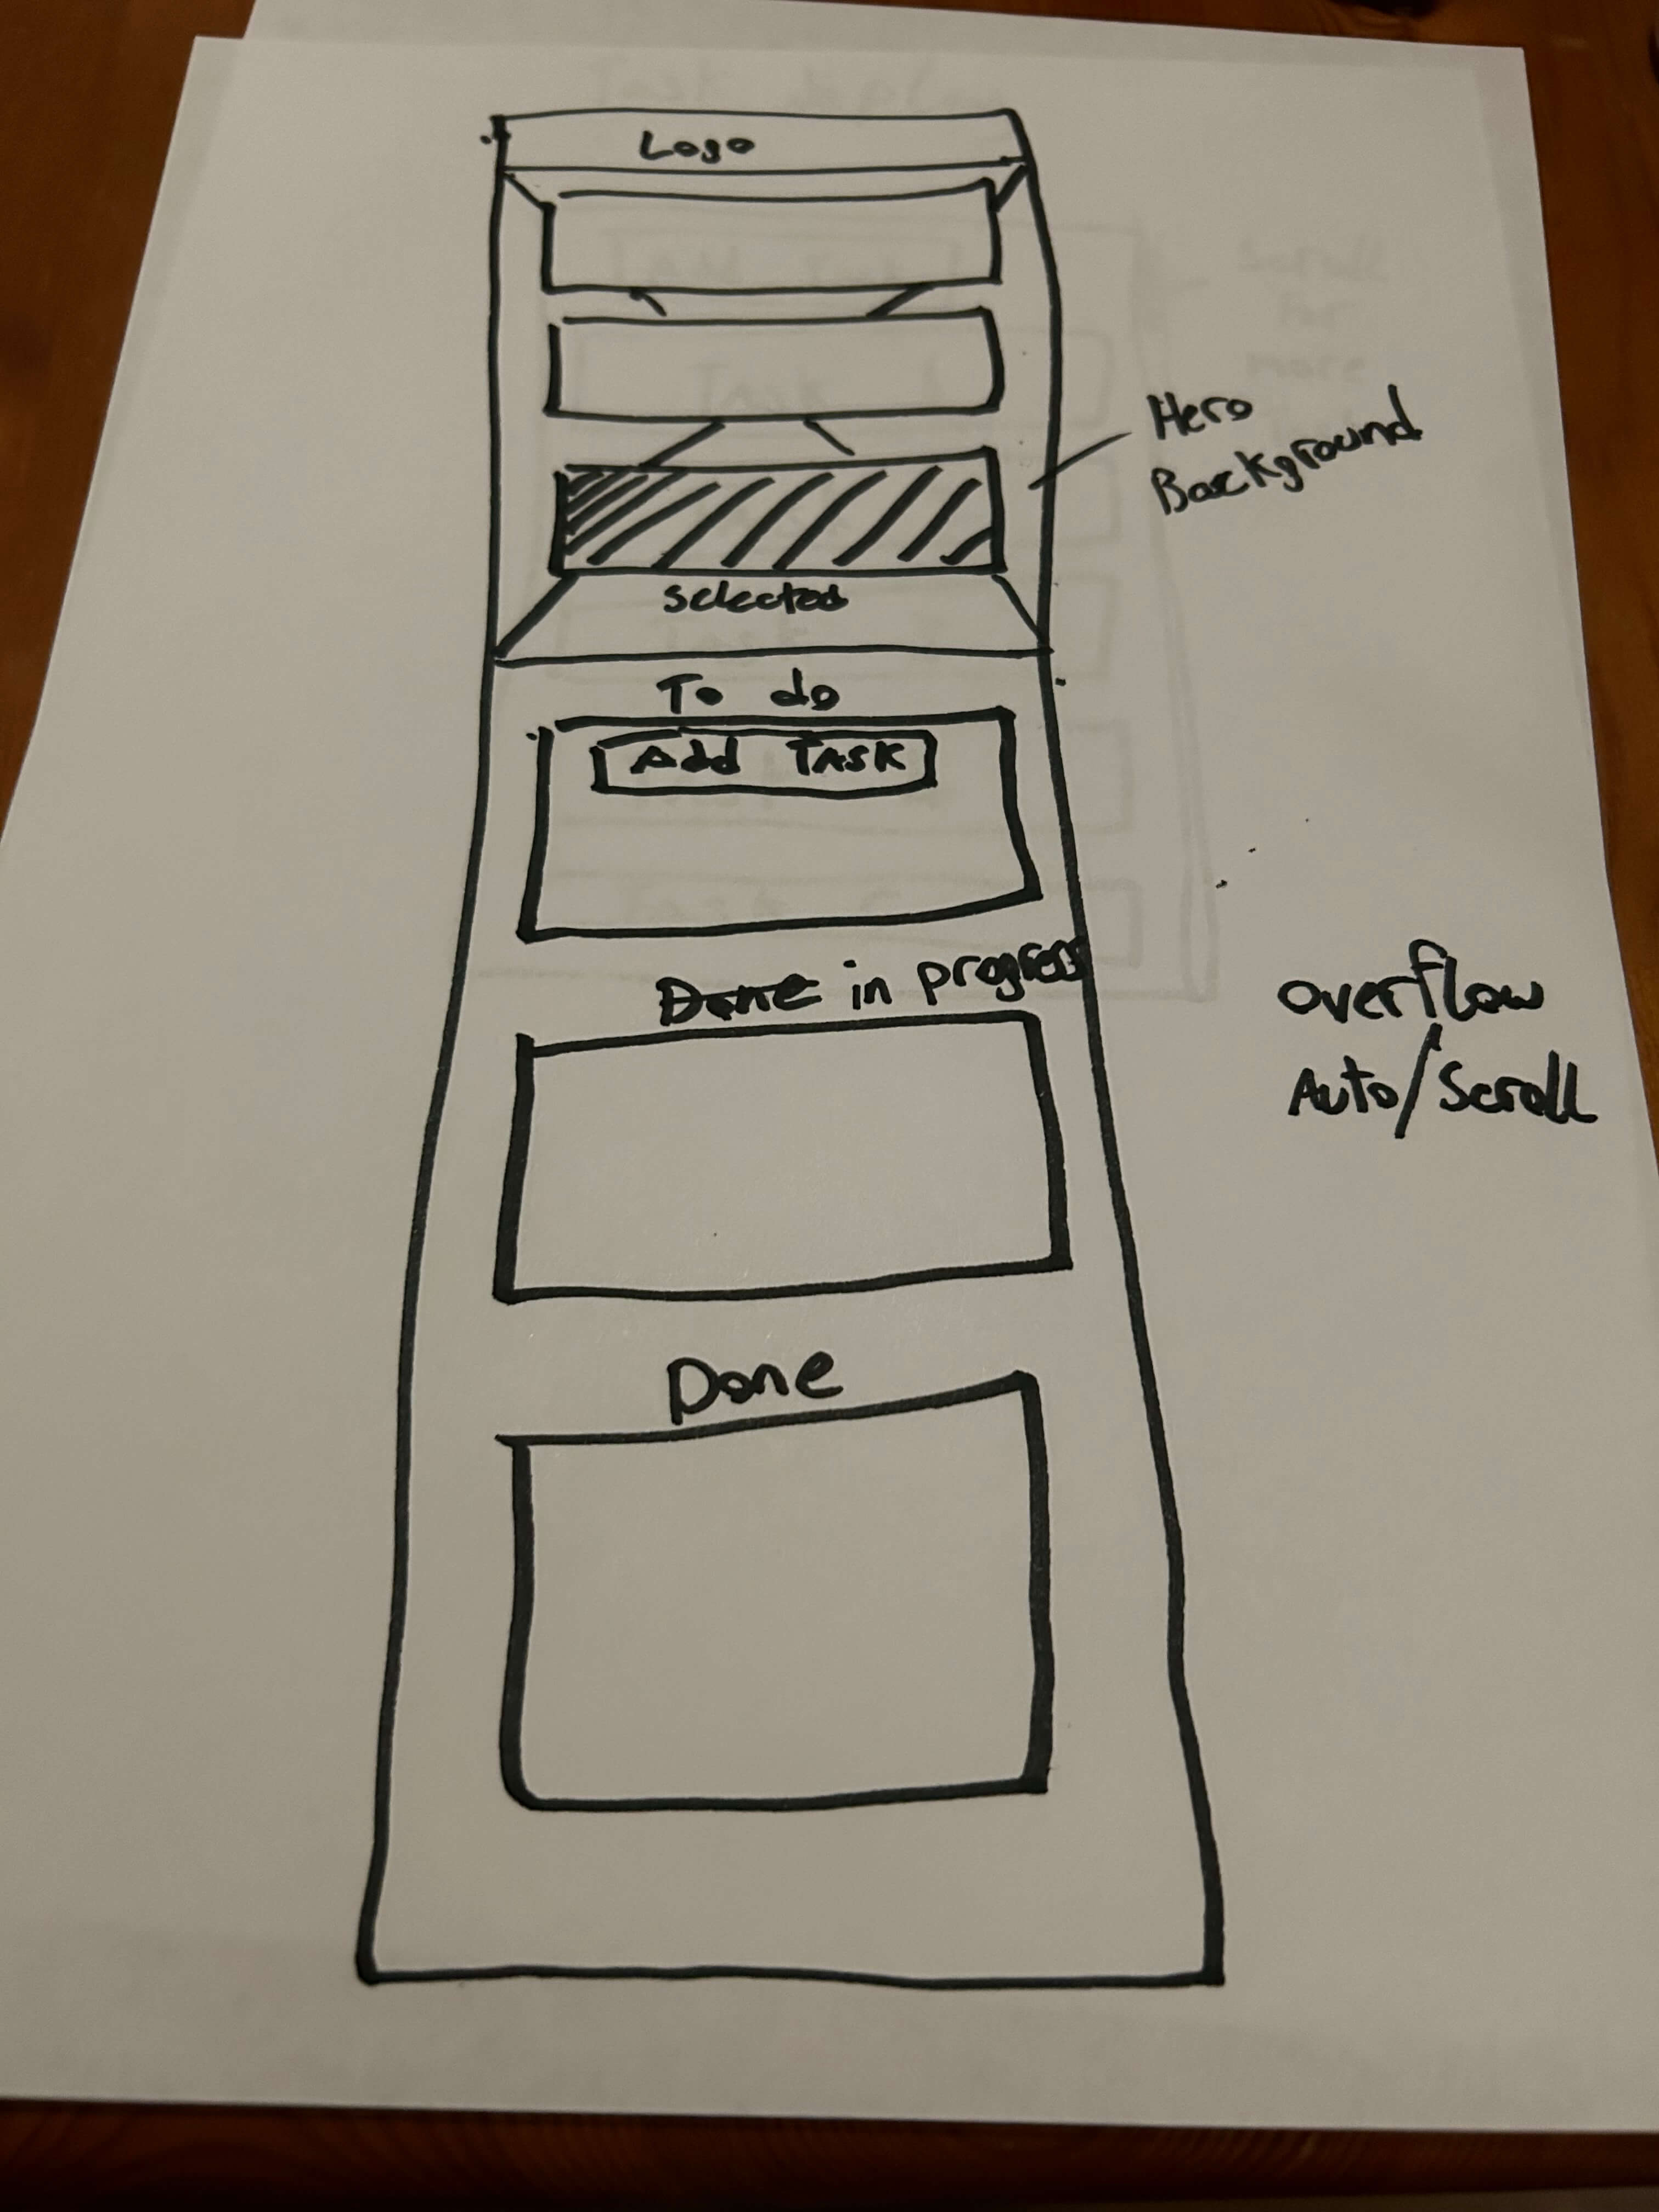 Logo
Hero
Background
selected
To do
Add TASK
Done in progress
overflow
Auto/Scroll
Done